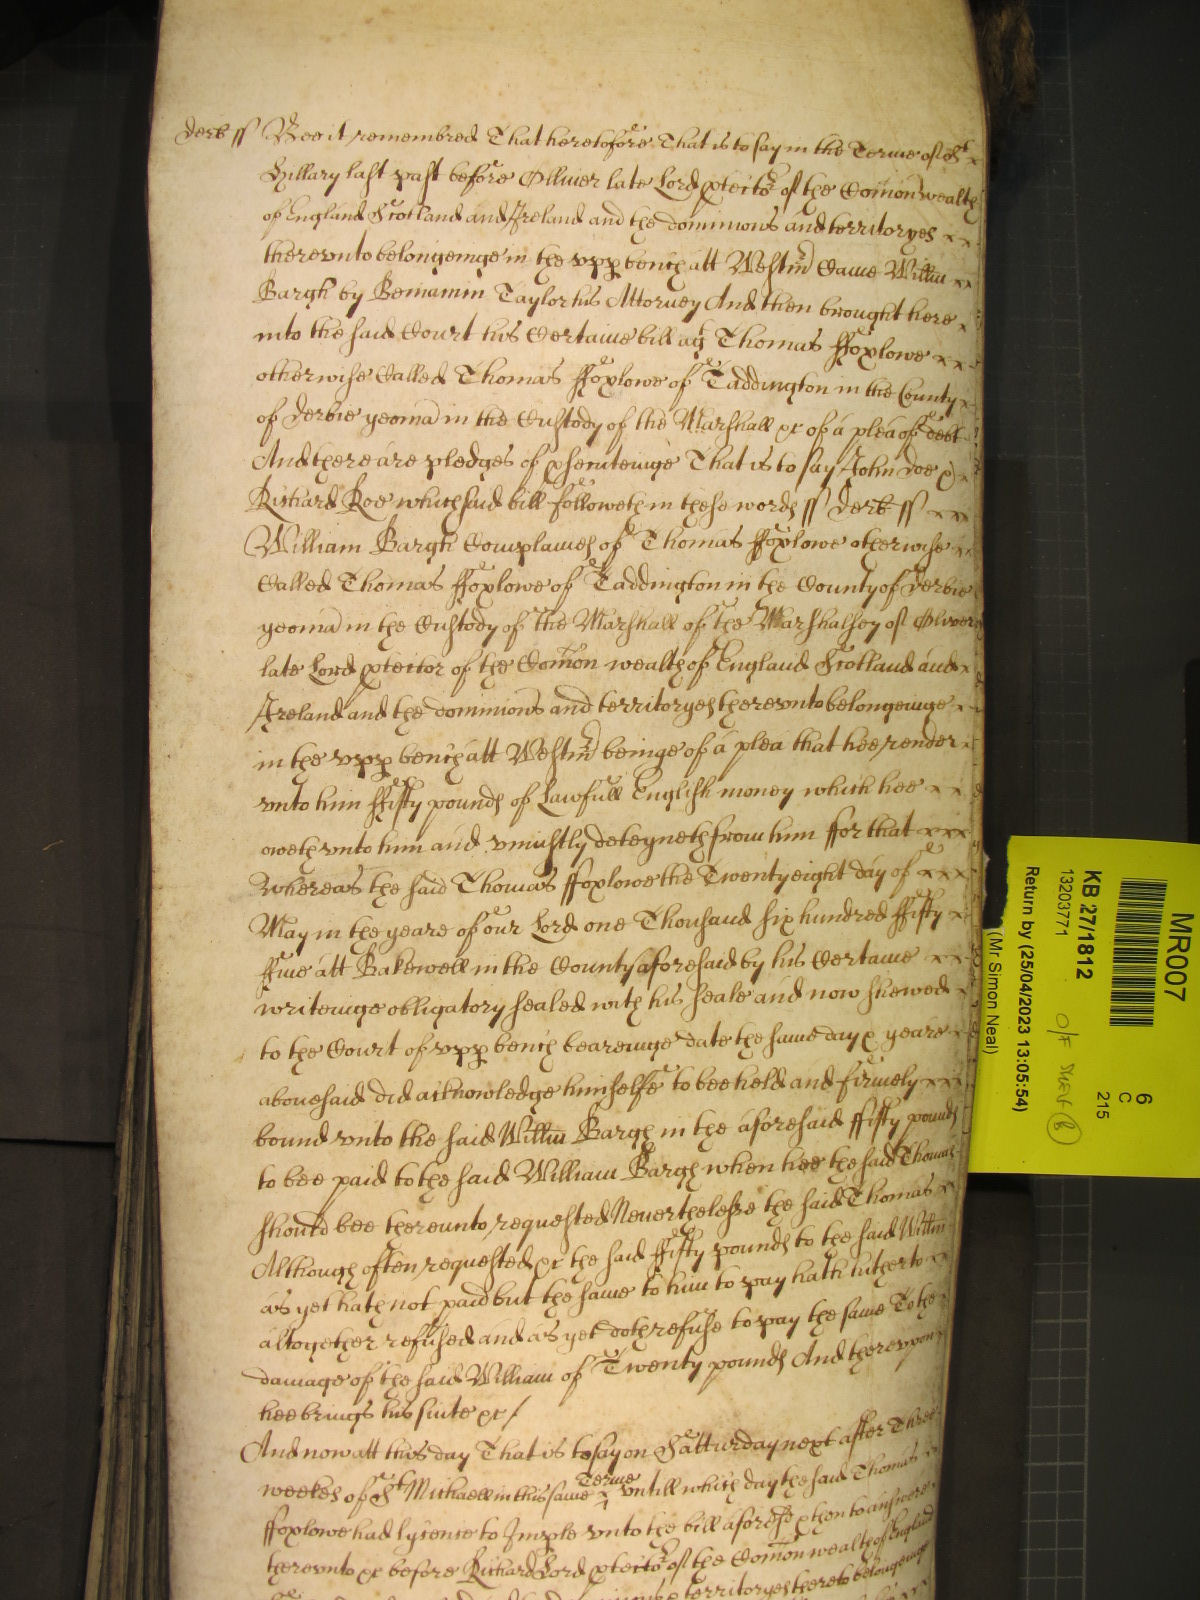 Derb ss Bee it remembred That heretofore That is to say in the Terme of St
Hillary last past before Olliver late Lord ptector of the Comon wealth
of England Scotland and Ireland and the dominions and territoryes
therevnto belongeinge in the vpp bench att Westm Came Willm
Bargh by Beniamin Taylor his Attorney And then brought here
into the said Court his Certaine bill agt Thomas ffoxlowe
otherwise Called Thomas ffoxlowe of Taddington in the County
of Derbie yeoman in the Custody of the Marshall &c of a plea of debt
And there are pledges of psecuteinge That is to say John Doe &
Richard Roe which said bill followeth in these words ss Derb ss
William Bargh Complaines of Thomas ffoxlowe otherwise
Called Thomas ffoxlowe of Taddington in the County of Derbie
yeoman in the Custody of the Marshall of the Marshalsey of Oliver
late Lord ptector of the Comon wealth of England Scotland and
Ireland and the dominions and territoryes therevnto belongeinge
in the vpp bench att Westm beinge of a plea that hee render
vnto him ffifty pounds of Lawfull English money which hee
oweth vnto him and vniustly deteyneth from him ffor that
Whereas the said Thomas ffoxlowe the Twenty eight day of
May in the yeare of our Lord one Thousand six hundred ffifty
ffiue att Bakewell in the County aforesaid by his Certaine
writeinge obligatory sealed with his seale and now shewed
to the Court of vpp bench beareinge date the same day & yeare
abouesaid did acknowledge himselfe to bee held and firmely
bound vnto the said Willm Bargh in the aforesaid ffifty pounds
to bee paid to the said William Bargh when hee the said Thomas
should bee therevnto requested Neverthelesse the said Thomas
Although often requested &c the said ffifty pounds to the said Willm
as yet hath not paid but the same to him to pay hath hitherto
altogether refused and as yet doth refuse to pay the same To the
damage of the said William of Twenty pounds And therevpon
hee brings his suite &c /
And now att this day That is to say on Satturday next after Three
weekes of St Michaell in this same Terme vntill which day the said Thomas
ffoxlowe had lycence to Imple vnto the bill aforesd & then to answere
therevnto &c before Richard Lord ptector of the Comon wealth of England
territoryes thereto belongeinge
MR007
6
C
215
KB 27/1812
13203771
O/F
Return by (25/04/2023 13:05:54)
(Mr Simon Neal)